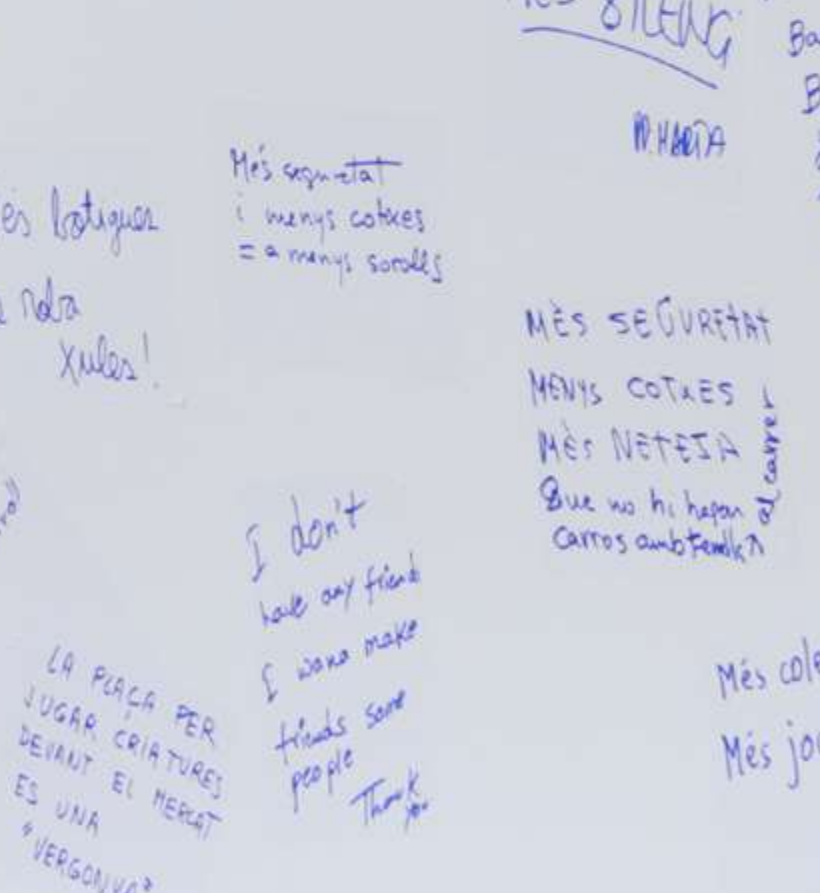 SILENCI
Ba
M. MARTA
Més seguretat
i menys cotxes
= a menys sorolls
és botigues
roba
xules!
MÈS SEGURETAT
MENYS COTXES
MÈS NETEJA
Que no hi hagan
carros amb
al carrer
I don't
have any friend
I wana make
friends some
people
Thank
you
LA PLAÇA PER
JUGAR CRIATURES
DEVANT EL MERCAT
ES UNA
"VERGONYA"
Més cole
Més jo